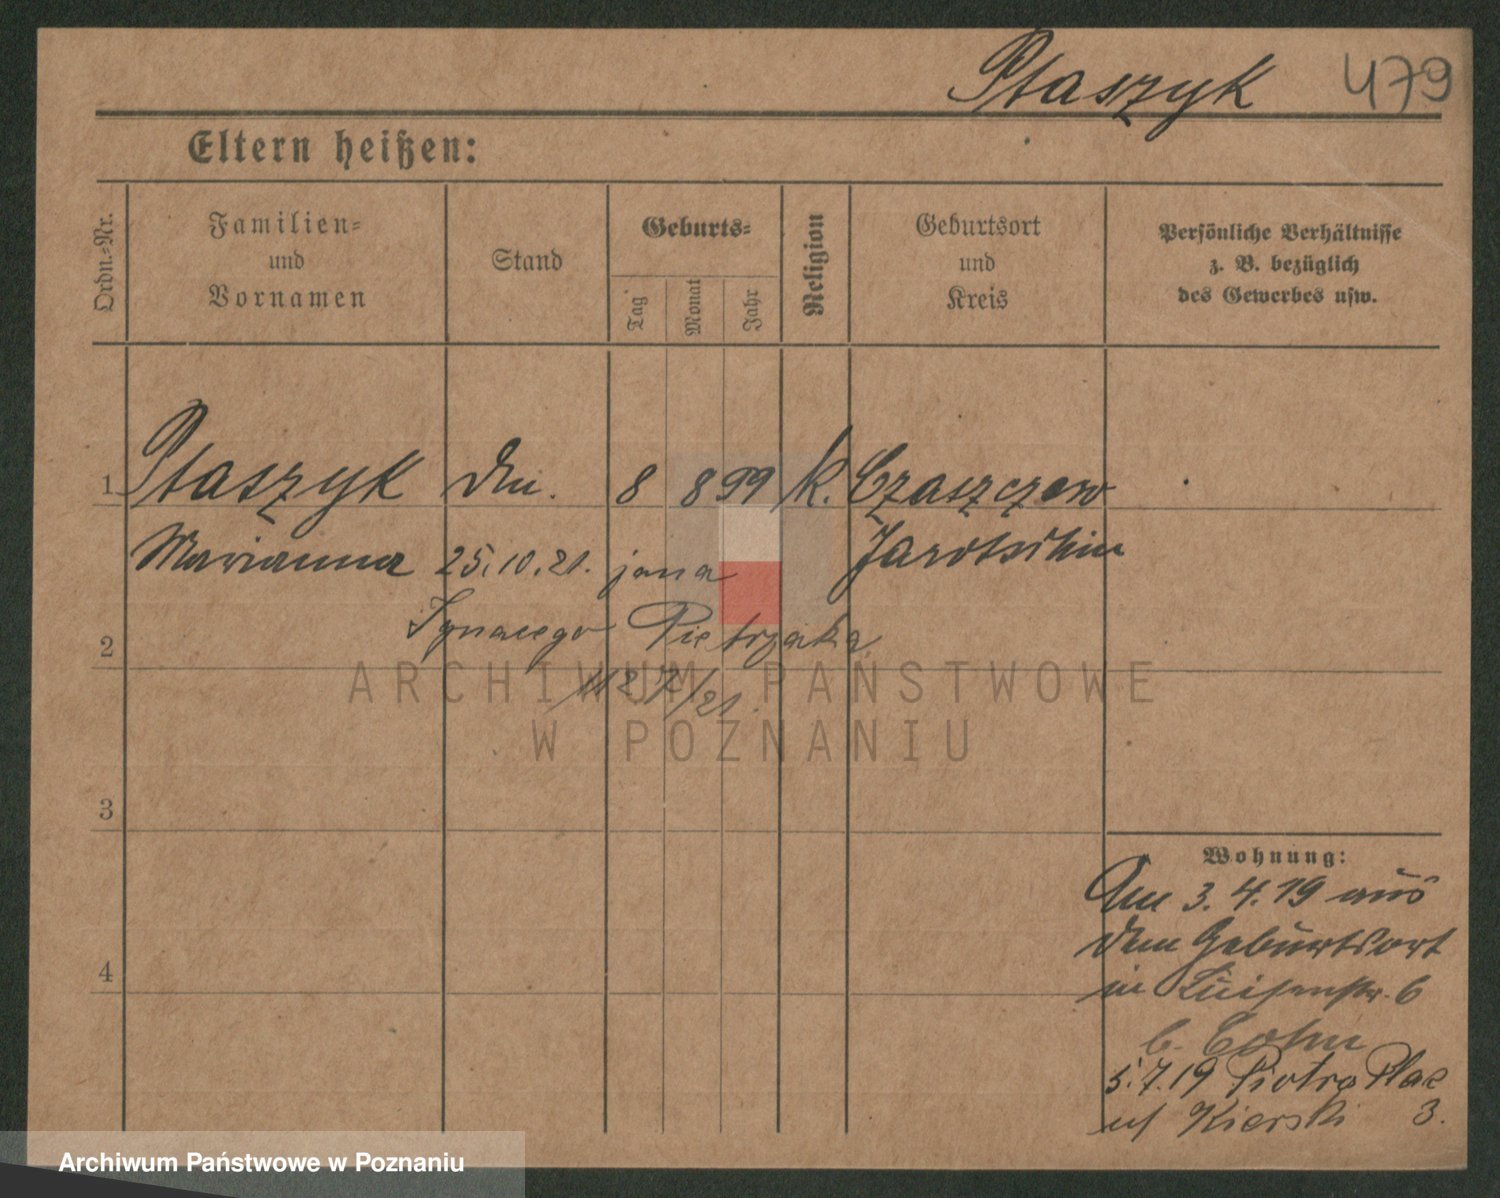 Ptaszyk 479
Eltern heißen:
Ordn.-Nr.
Familien-
und
Vornamen
Stand
Geburts-
Tag
Monat
Jahr
Religion
Geburtsort
und
Kreis
Persönliche Verhältnisse
z. B. bezüglich
des Gewerbes usw.
1 Ptaszyk Dm. 8 8 99 K. Czaszczew
Marianna 25.10.21. Jarotschin
2 Ignacego Pietrzaka
/21.
ARCHIWUM PAŃSTWOWE
W POZNANIU
3
4
Wohnung:
Am 3. 4. 19 aus
dem Geburtsort
in Luisenstr. 6
b. Cohn
5.7.19 Piotra Plac
u/ Kierski 3.
Archiwum Państwowe w Poznaniu